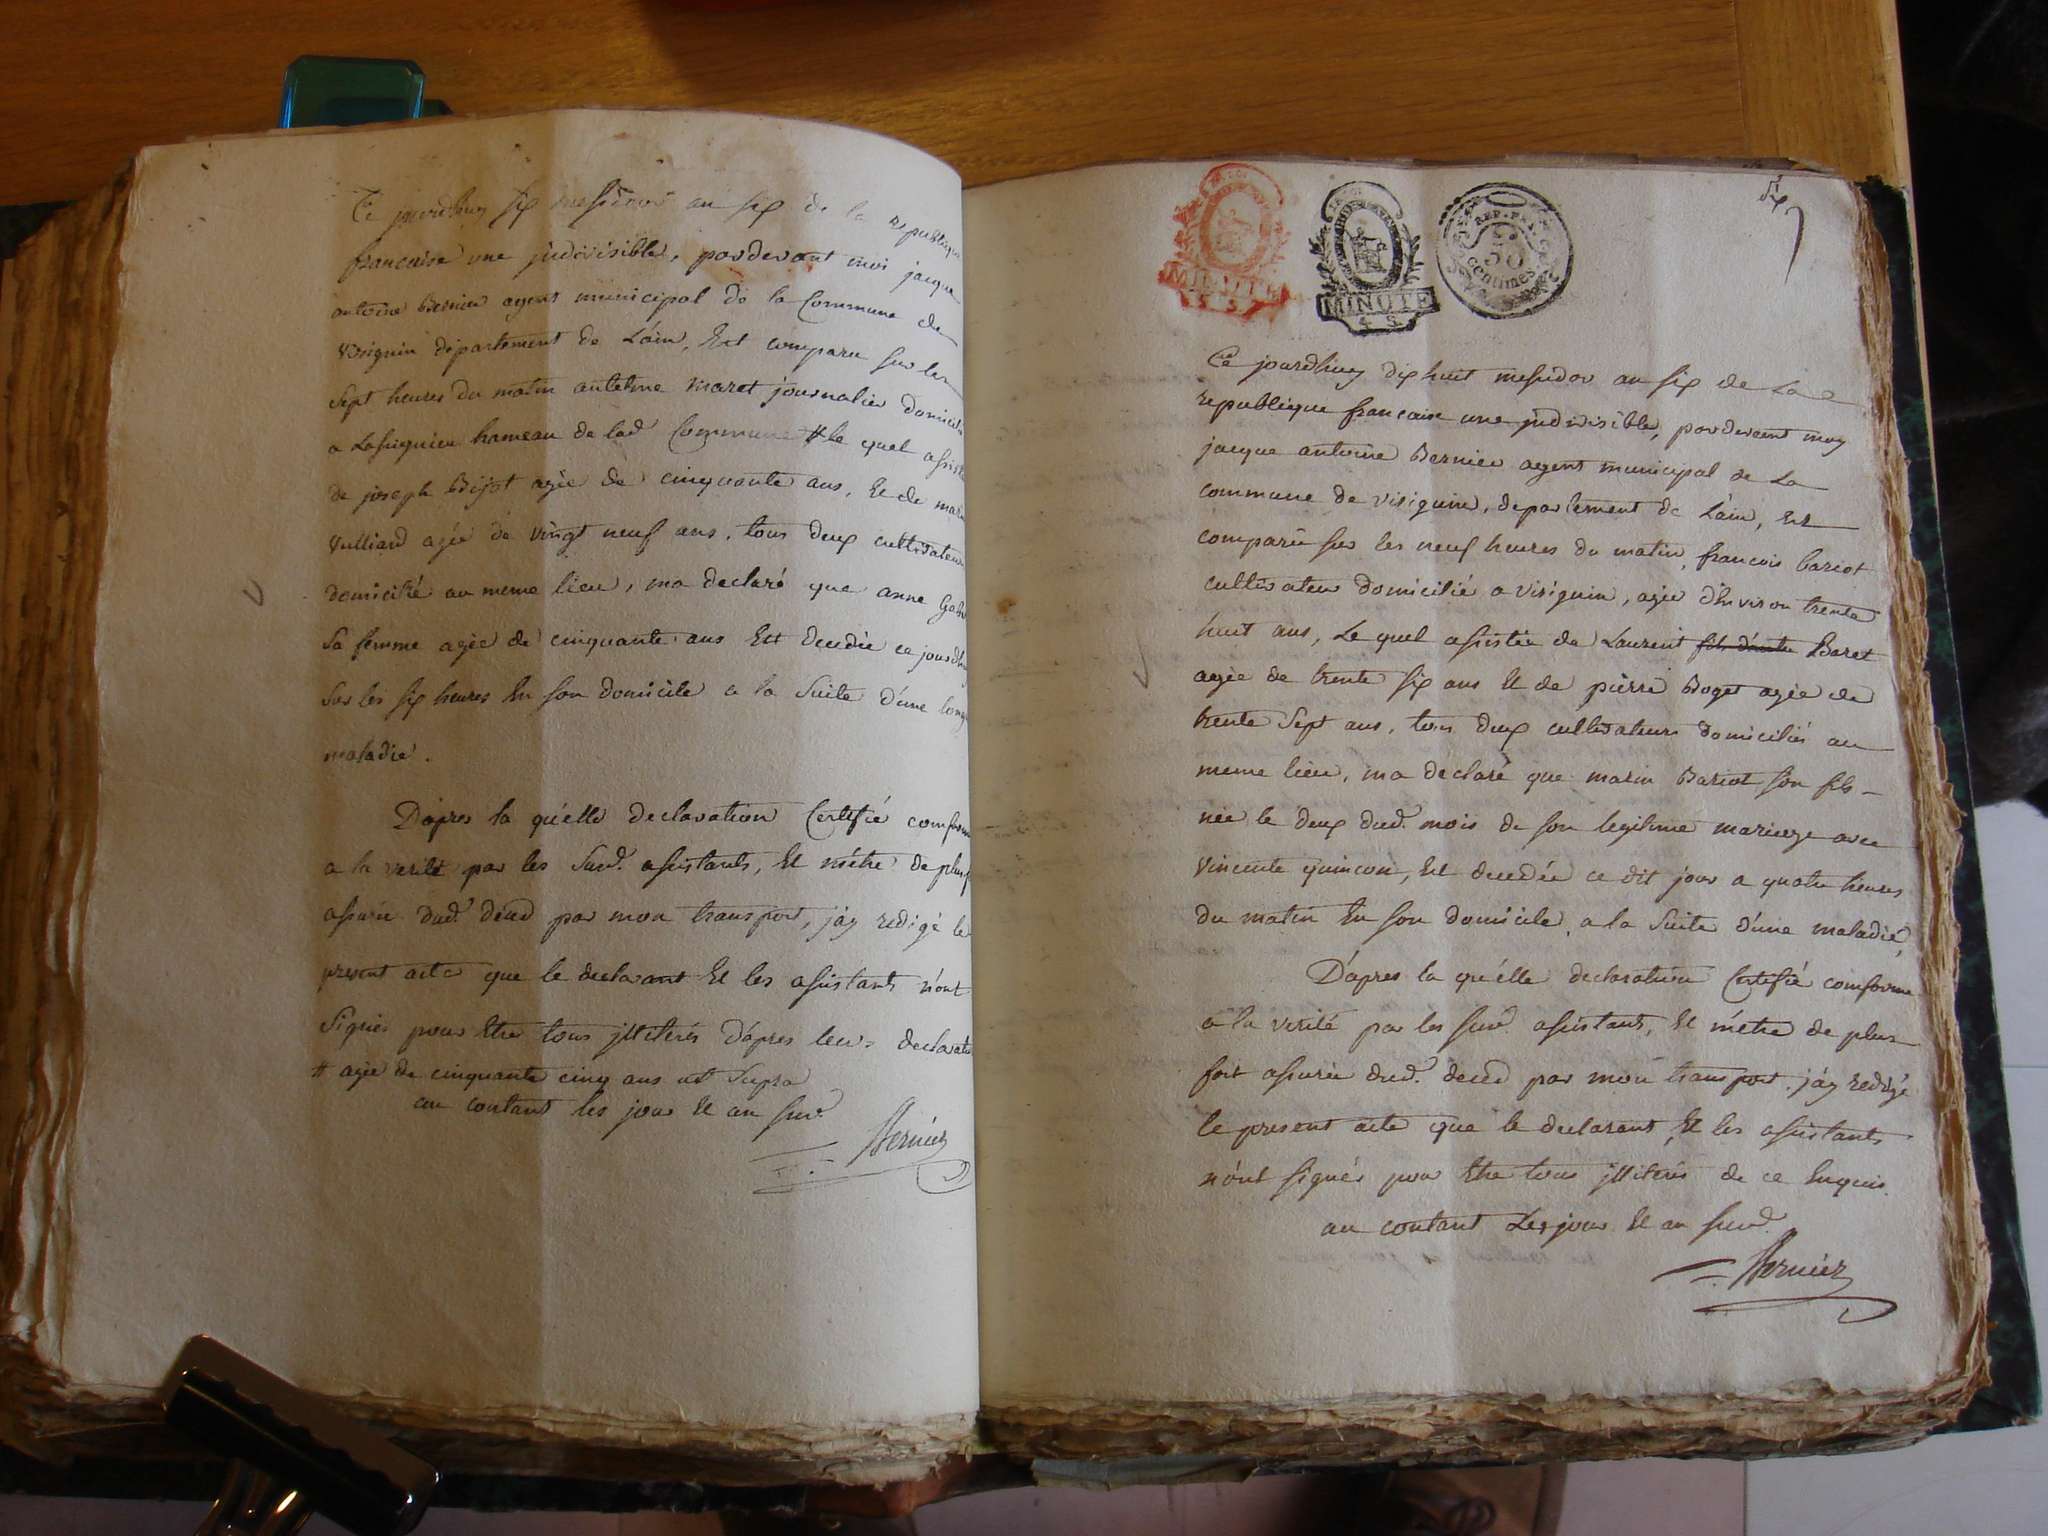 Ce jourdhuy six messidor an six de la republique
francaise une jndivisible, pardevant moi jacque
antoine Bernier agent municipal de la Commune de
Virignin département de L'ain, Est comparu sur les
sept heures du matin antelme maret journalier domicilié
a Lassignieu hameau de lad. Commune # le quel assisté
de joseph Bijot agée de cinquante ans, Et de
Vulliard agée de vingt neuf ans, tous deux cultivateurs
domicilié au meme lieu, ma declaré que anne
Sa femme agée de cinquante ans Est decedée ce jourdhuy
sur les six heures En son domicile a la Suite d'une longue
maladie.
D'apres la qu'elle declaration Certifié comforme
a la verité par les Susd. assistants, Et m'etre de plus
assurée dud. deced par mon transport, j'ay redigé le
present acte que le declarant Et les assistants n'ont
Signés pour Etre tous jlliterés D'apres leur declaration
# agée de cinquante cinq ans ut Supra
au contant les jour Et an susd.
Bernier
six
7
MINUTE
4 S
MINUTE
4 S
REP. FRA.
50
centimes
Ce jourdhuy dix huit messidor an six de La
republique francaise une jndivisible, pardevant moy
jacque antoine Bernier agent municipal de La
commune de virignin, departement de L'ain, Est
comparu sur les neuf heures du matin, francois Bariot
cultivateur domicilié a virignin, agée d'Environ trente
huit ans, Le quel assistée de Laurent Baret
agée de trente six ans Et de pierre Boget agée de
trente Sept ans, tous deux cultivateurs domiciliés au
meme lieu, ma declaré que marin Bariot son fils
née le deux dud. mois de son legitime mariage avec
Vincente quincon, Est decedée ce dit jour a quatre heures
du matin En son domicile, a la Suite d'une maladie,
D'apres la qu'elle declaration Certifié comforme
a la verité par les susd. assistants, Et m'etre de plus
fort assurée dud. deced par mon transport. j'ay redigé
le present acte que le declarant, Et les assistants
n'ont signés pour Etre tous jlliterés de ce Enquis.
au contant Les jour Et an susd.
Bernier